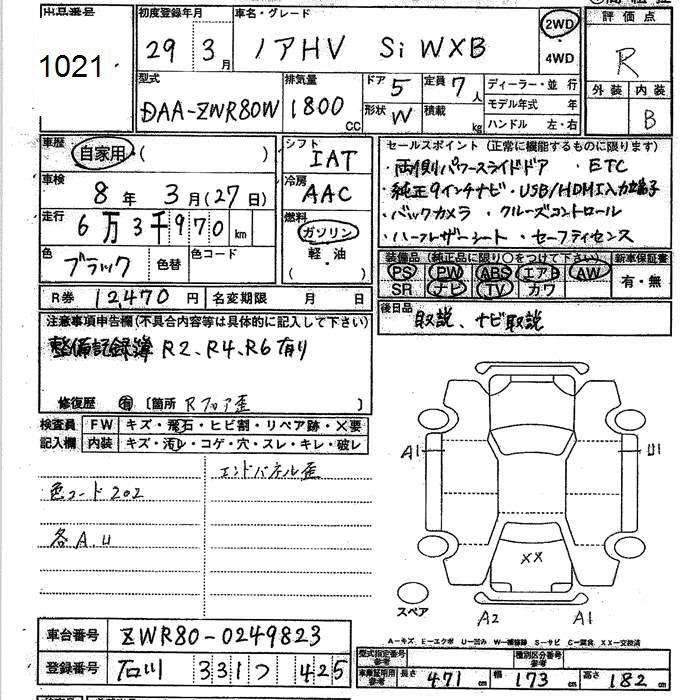 出品番号
1021
初度登録年月
29 3月
車名・グレード
ノアHV Si WXB
2WD
4WD
評価点
R
外装 内装
B
型式
DAA-ZWR80W
排気量
1800 CC
ドア 5
形状 W
定員 7人
積載 kg
ディーラー・並行
モデル年式 年
ハンドル 左・右
車歴
自家用・( )
シフト
IAT
車検
8年 3月(27日)
冷房
AAC
走行
6万3千970km
燃料
ガソリン
軽・油
( )
色
ブラック
色替
色コード
R券 12,470円
名変期限 月 日
セールスポイント(正常に機能するものに限ります)
・両側パワースライドドア ・ETC
・純正9インチナビ・USB/HDMI入力端子
・バックカメラ ・クルーズコントロール
・ハーフレザーシート ・セーフティセンス
装備品(純正品に限り○をつけて下さい)
新車保証書
PS PW ABS エアB AW
SR ナビ TV カワ
有・無
後日品
取説、ナビ取説
注意事項申告欄(不具合内容等は具体的に記入して下さい)
整備記録簿 R2、R4、R6有り
修復歴 有 〔箇所 Rフロア歪 〕
検査員
記入欄
FW キズ・飛石・ヒビ割・リペア跡・X要
内装 キズ・汚レ・コゲ・穴・スレ・キレ・破レ
エンドパネル歪
色コード202
各A.U
A1
U1
XX
スペア
A2
A1
A−キズ E−エクボ U−凹み W−補修跡 S−サビ C−腐食 XX−交換済
車台番号 ZWR80-0249823
登録番号 石川 331つ 425
型式指定番号
参考
種別区分番号
参考
車庫証明用
参考
長さ 471cm 幅 173cm 高さ 182cm